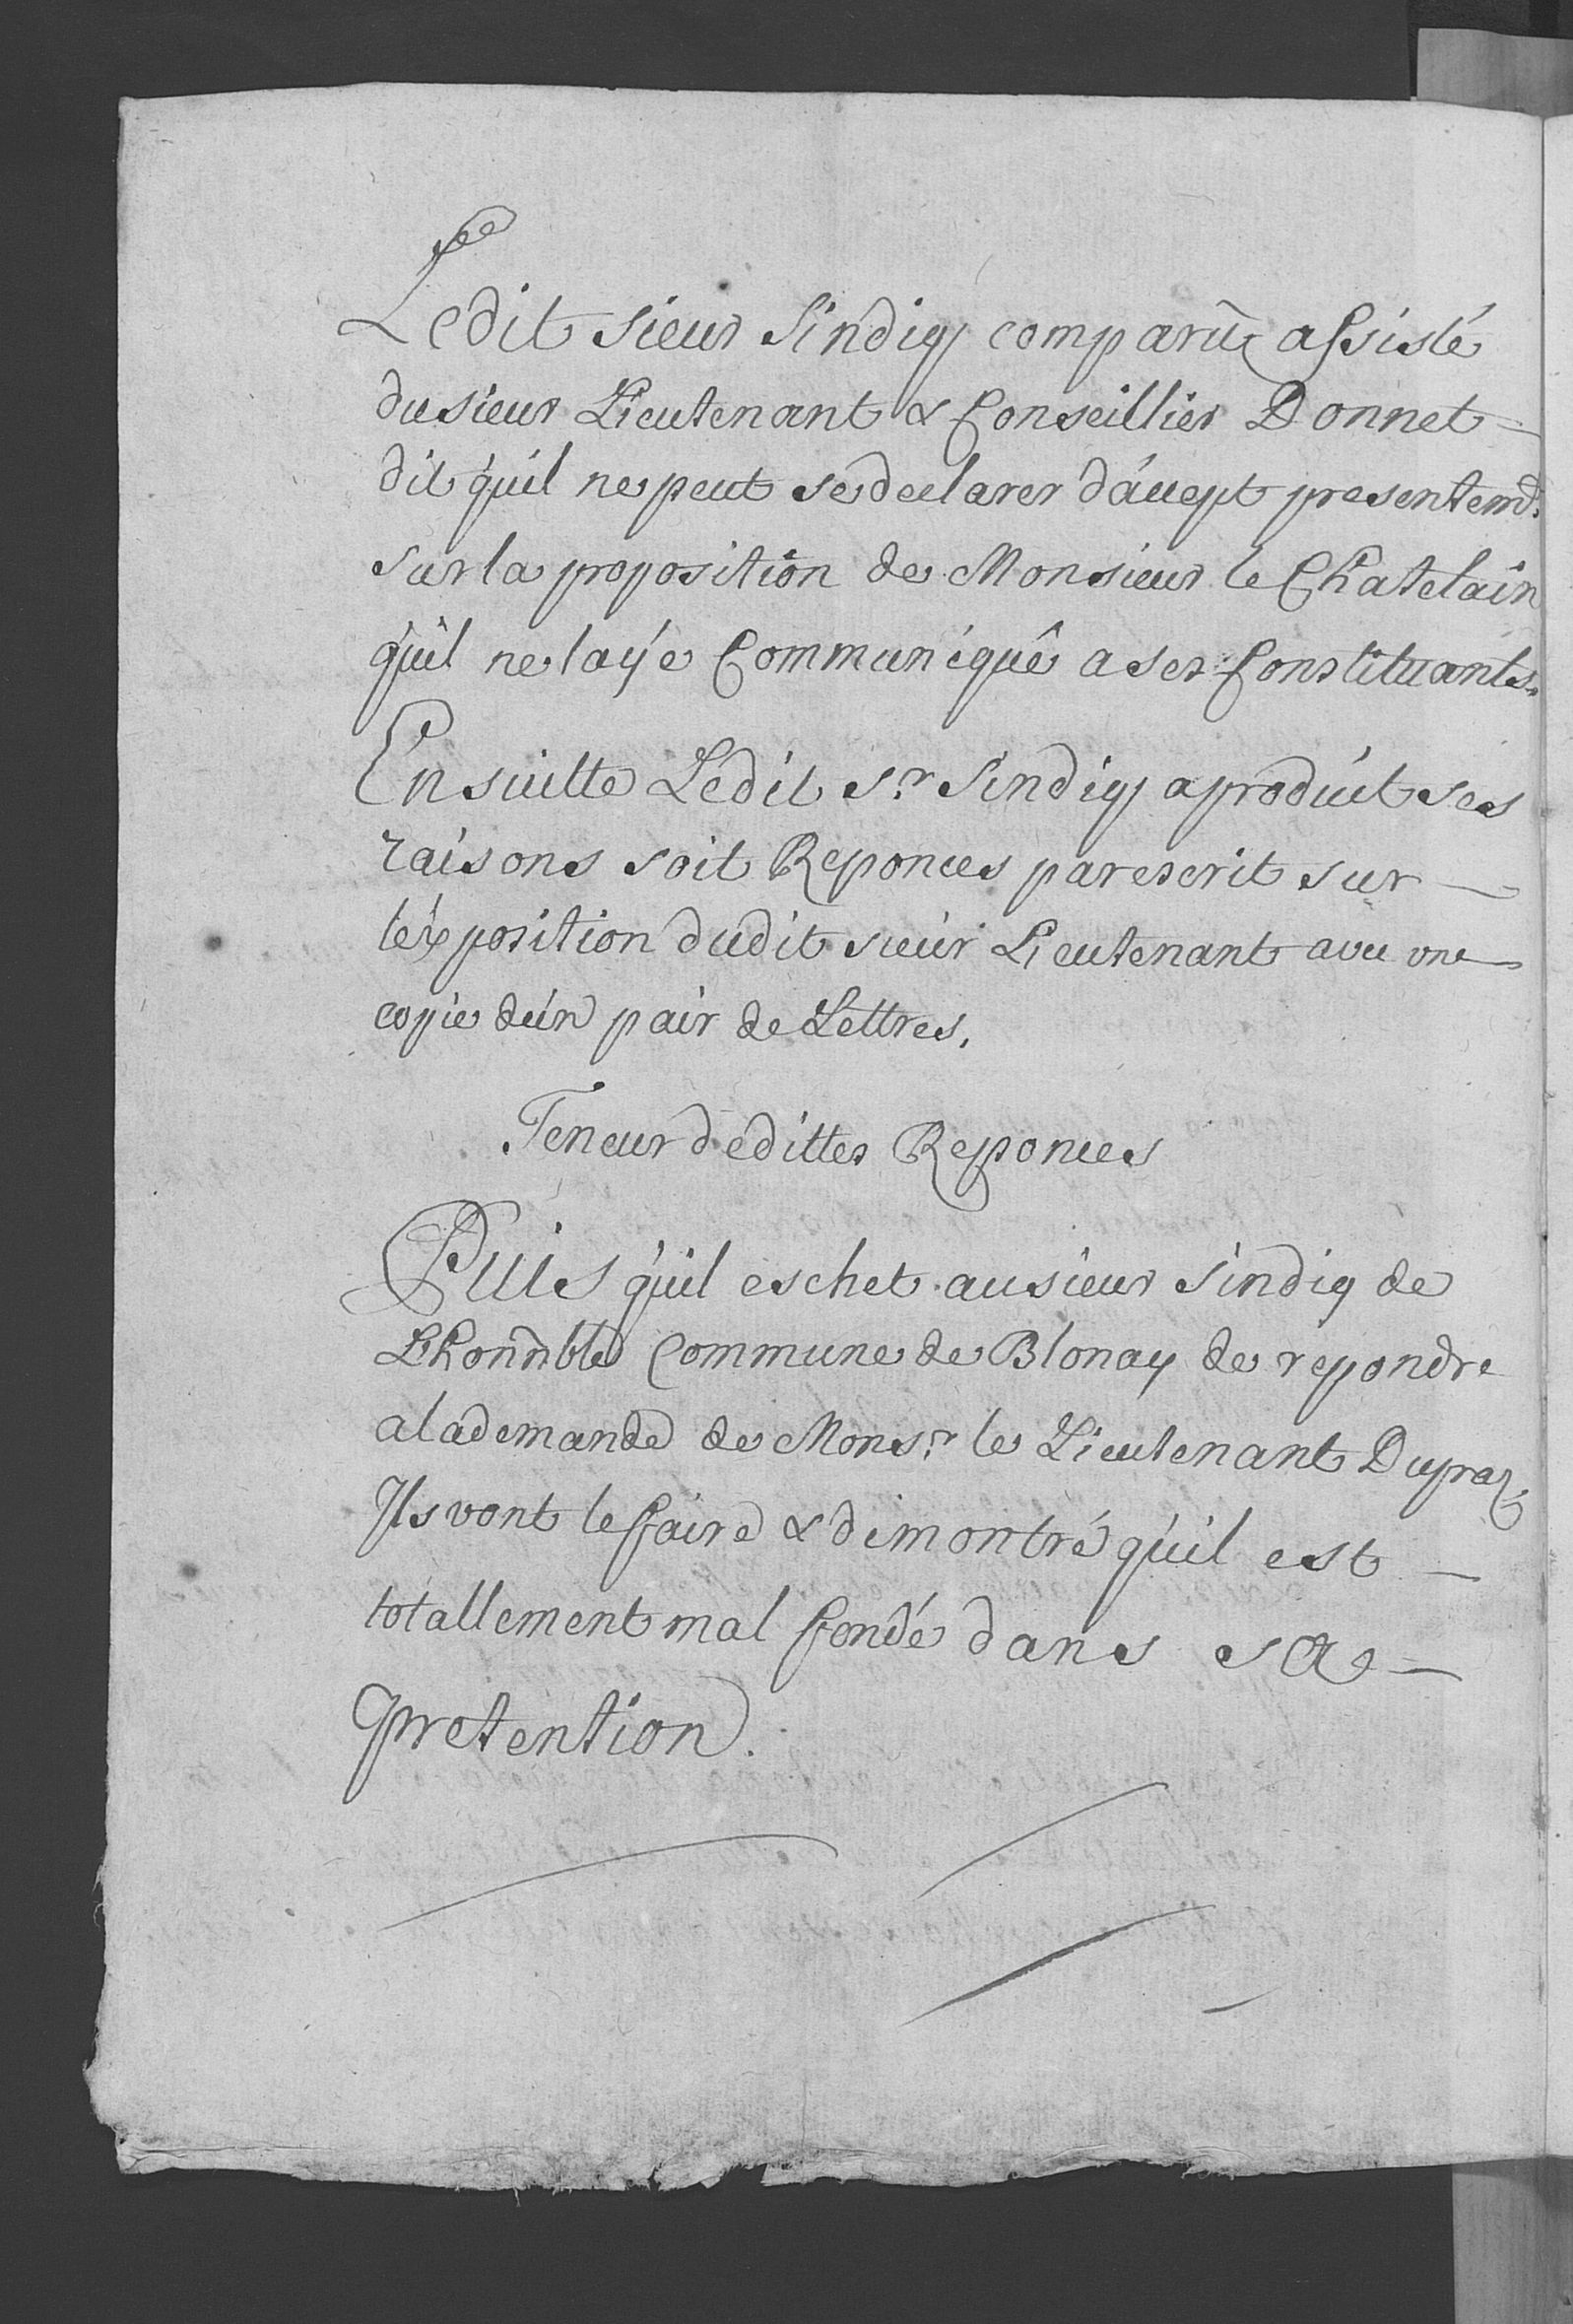 Ledit sieur Sindiq comparû assisté
du sieur Lieutenant & Conseillier Donnet
dit qu'il ne peut se declarer d'accept presentem.t
sur la proposition de Monsieur le Chatelain
qu'il ne laÿe Communiqué a ses Constituants.
Ensuitte Ledit S.r Sindiq a produit ses
raisons soit Reponces par escrit sur
léxposition dudit sieur Lieutenant avec une
copie d'un pair de Lettres.
Teneur dédittes Reponces
Puis qu'il eschet au sieur Sindiq de
Lhonnble Commune de Blonay de repondre
a la demande de Mons.r le Lieutenant Dupraz,
Ils vont le faire & dimontré qu'il est
totallement mal fondé dans sa
pretention.